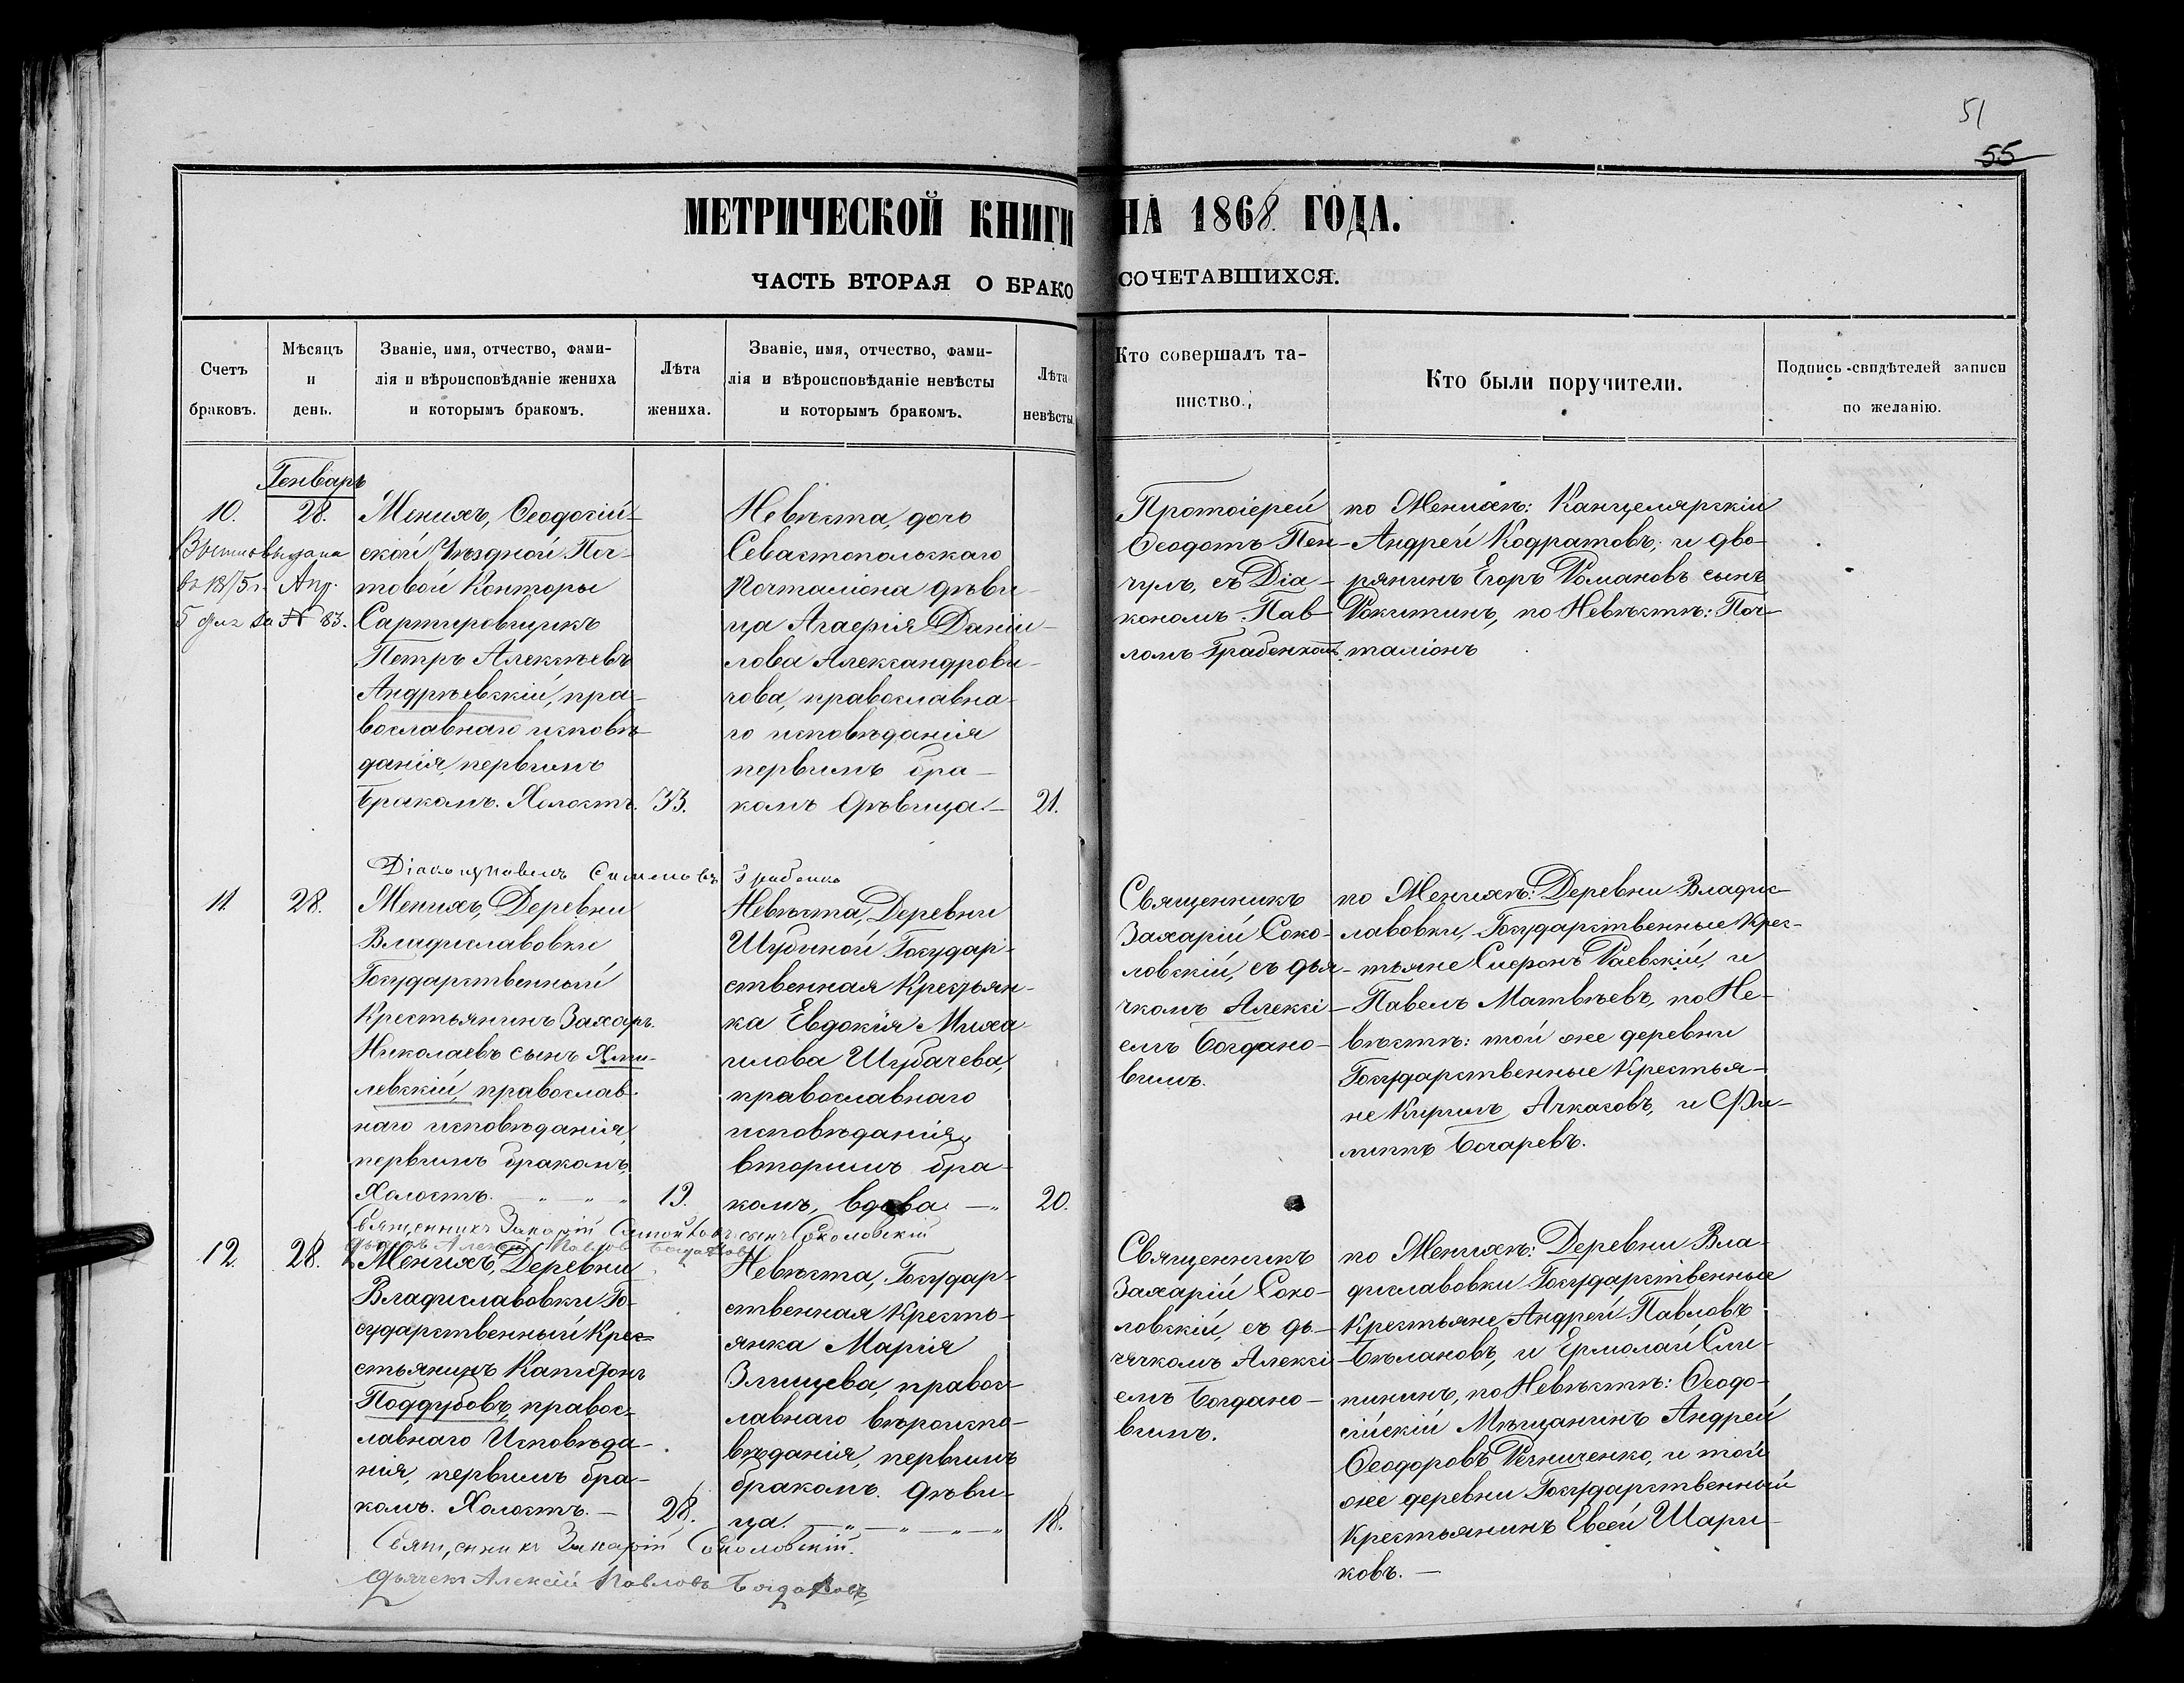 51
55
МЕТРИЧЕСКОЙ КНИГИ НА 1868 ГОДА.
ЧАСТЬ ВТОРАЯ О БРАКОСОЧЕТАВШИХСЯ.
Счетъ
браковъ.
Мѣсяцъ
и
день.
Званіе, имя, отчество, фами-
лія и вѣроисповѣданіе жениха
и которымъ бракомъ.
Лѣта
жениха.
Званіе, имя, отчество, фами-
лія и вѣроисповѣданіе невѣсты
и которымъ бракомъ.
Лѣта
невѣсты.
Кто совершалъ та-
инство.
Кто были поручители.
Подпись свидѣтелей записи
по желанію.
Генварь
10.
28.
выдана
въ 1875 г. Апр.
за № 83.
Женихъ, Ѳеодосій-
ской Уѣздной Поч-
товой Конторы
Сартировщикъ
Петръ Алексѣевъ
Андрѣевскій, пра-
вославнаго исповѣ-
данія, первымъ
бракомъ. Холостъ.
33.
Невѣста, дочь
Севастопольскаго
Почталіона дѣви-
ца Агафія Даніи-
лова Александрови-
чова, православна-
го исповѣданія
первымъ бра-
комъ дѣвица.—
21.
Протоіерей
Ѳеодотъ Пен-
чулъ, съ Діа-
кономъ Пав-
ломъ Грабенкомъ.
по Женихѣ: Канцелярскій
Андрей Кодратовъ, и дво-
рянинъ Егоръ Романовъ сынъ
Рокитинъ, по Невѣстѣ: Поч-
таліонъ
Діаконъ Павелъ Симеоновъ Грабенко
11.
28.
Женихъ, Деревни
Владиславовки
Государственный
Крестьянинъ Захаръ
Николаевъ сынъ Хми-
левскій, православ-
наго исповѣданія,
первымъ бракомъ,
Холостъ.
19.
Невѣста, Деревни
Шубиной Государ-
ственная Крестьян-
ка Евдокія Миха-
илова Шубачева,
православнаго
исповѣданія,
вторымъ бра-
комъ, вдова —
20.
Священникъ
Захарій Соко-
ловскій, съ дья-
чкомъ Алексі-
емъ Богдано-
вымъ.
по Женихѣ: Деревни Владис-
лавовки, Государственные Крес-
тьяне Сиѳронъ Раевскій, и
Павелъ Матвѣевъ, по Не-
вѣстѣ: той же деревни
Государственные Крестья-
не Кирилъ Ачкасовъ, и Фи-
липпъ Богаревъ.
Священникъ Захарій сынъ Соколовскій
дьячекъ Алексій Павловъ Богдановъ
12.
28.
Женихъ, Деревни
Владиславовки Го-
сударственный Крес-
стьянинъ Капитонъ
Поддубовъ, правос-
лавнаго Исповѣда-
нія, первымъ бра-
комъ. Холостъ.—
28.
Невѣста, Государ-
ственная Кресть-
янка Марія
Злищева, правос-
лавнаго вѣроиспо-
вѣданія, первымъ
бракомъ. дѣви-
ца.
18.
Священникъ
Захарій Соко-
ловскій, съ дь-
ячкомъ Алексі-
емъ Богдано-
вымъ.
по Женихѣ: Деревни Вла-
диславовки Государственные
Крестьяне Андрей Павловъ
Бѣлановъ, и Ермолай Сли-
пининъ, по Невѣстѣ: Ѳеодо-
сійскій Мѣщанинъ Андрей
Ѳеодоровъ Речниченко, и той
же деревни Государственный
Крестьянинъ Евсей Шари-
ковъ.—
Священникъ Захарій Соколовскій.
Дьячекъ Алексій Павловъ Богдановъ